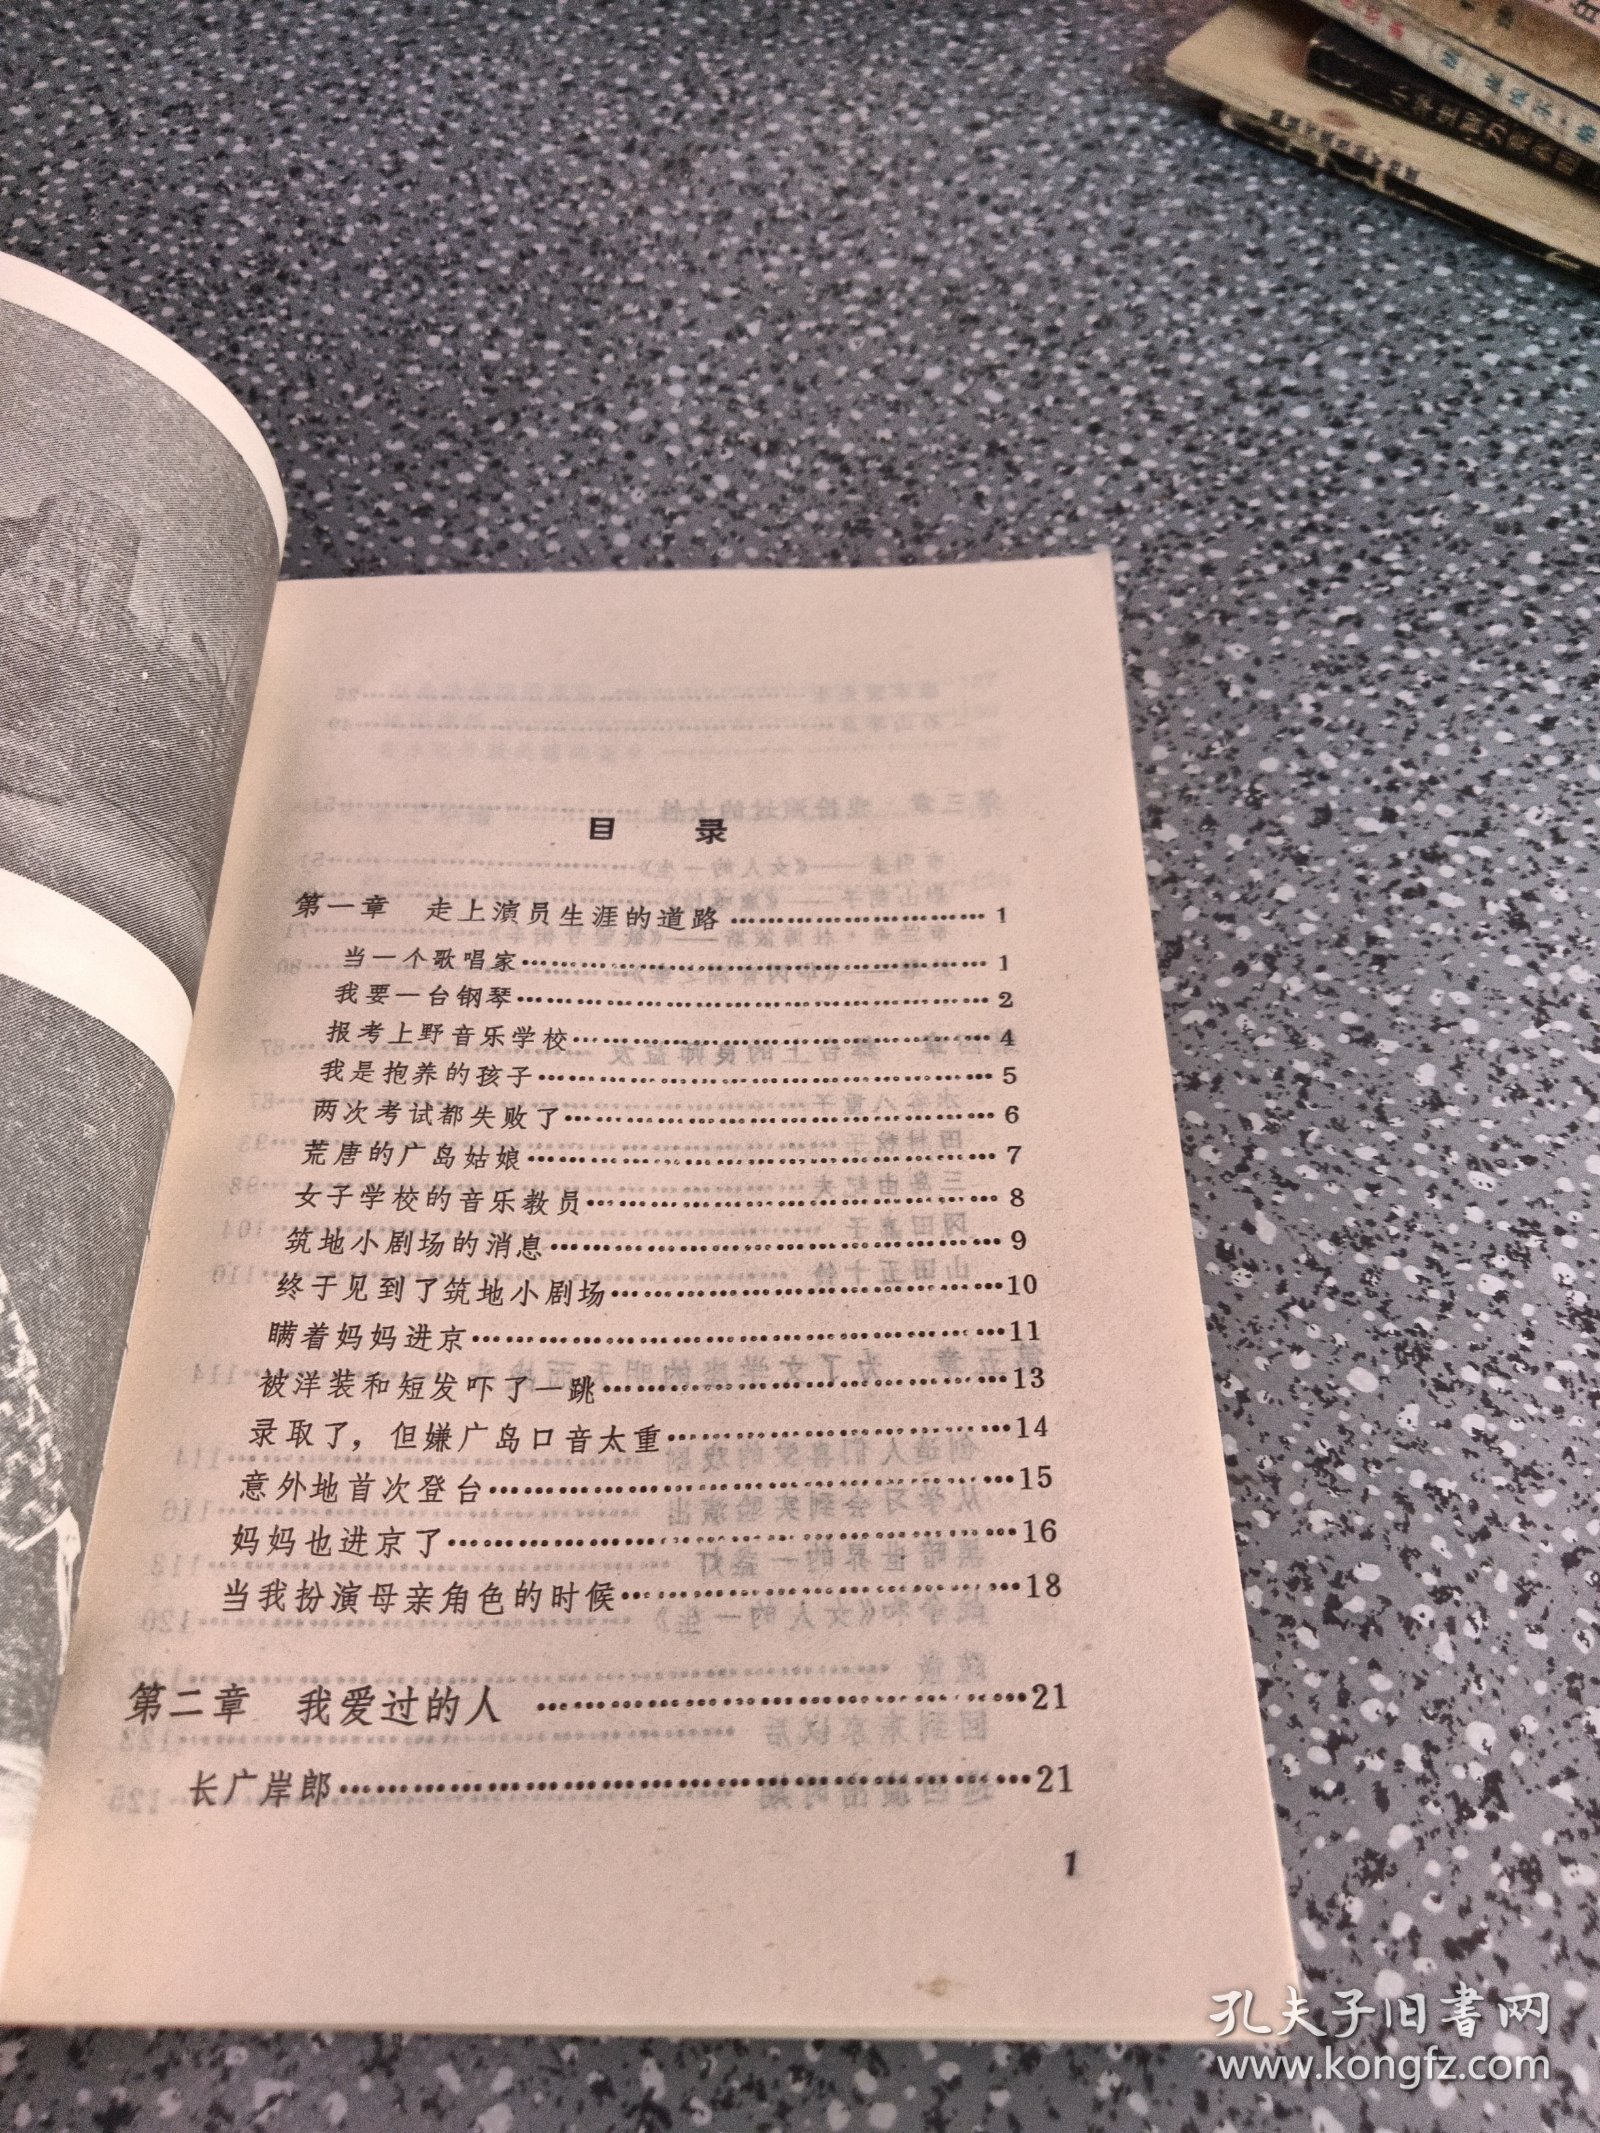 目 录
第一章 走上演员生涯的道路……………………1
当一个歌唱家……………………………………1
我要一台钢琴……………………………………2
报考上野音乐学校………………………………4
我是抱养的孩子…………………………………5
两次考试都失败了………………………………6
荒唐的广岛姑娘…………………………………7
女子学校的音乐教员……………………………8
筑地小剧场的消息………………………………9
终于见到了筑地小剧场…………………………10
瞒着妈妈进京……………………………………11
被洋装和短发吓了一跳…………………………13
录取了，但嫌广岛口音太重……………………14
意外地首次登台…………………………………15
妈妈也进京了……………………………………16
当我扮演母亲角色的时候………………………18
第二章 我爱过的人 ……………………………21
长广岸郎…………………………………………21
1
孔夫子旧书网
www.kongfz.com